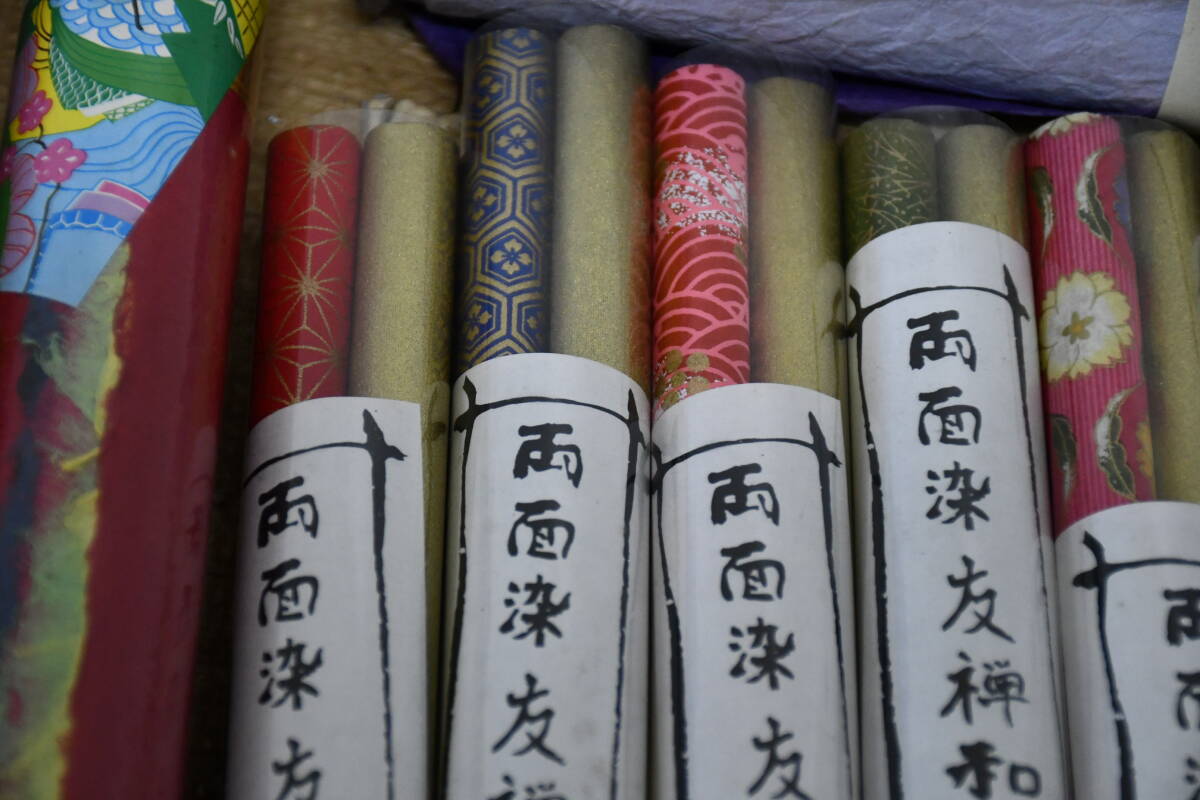 両面染友
両面染友禅
両面染友
両面染友禅和
両面